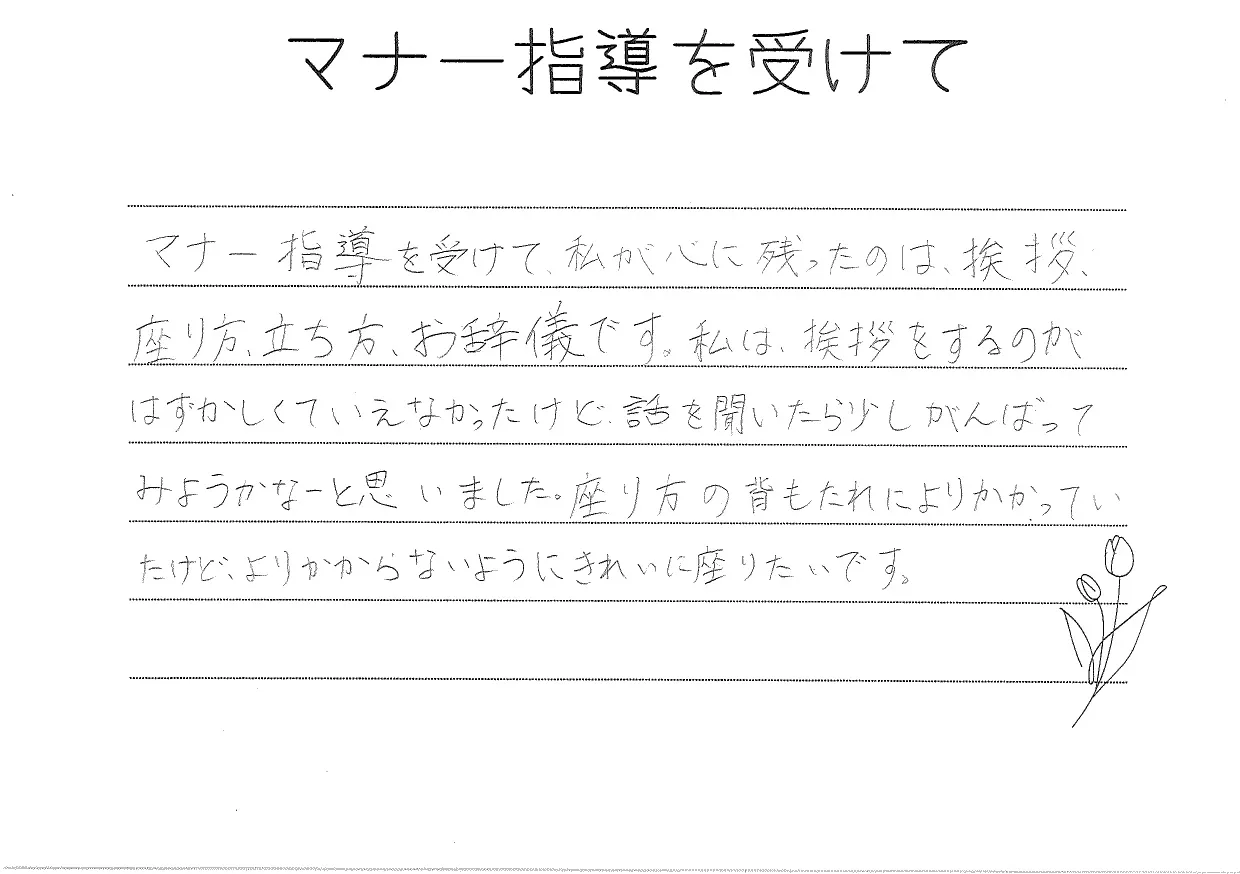 マナー指導を受けて
マナー指導を受けて、私が心に残ったのは、挨拶、
座り方、立ち方、お辞儀です。私は、挨拶をするのが
はずかしくていえなかったけど、話を聞いたら少しがんばって
みようかなーと思いました。座り方の背もたれによりかかってい
たけど、よりかからないようにきれいに座りたいです。